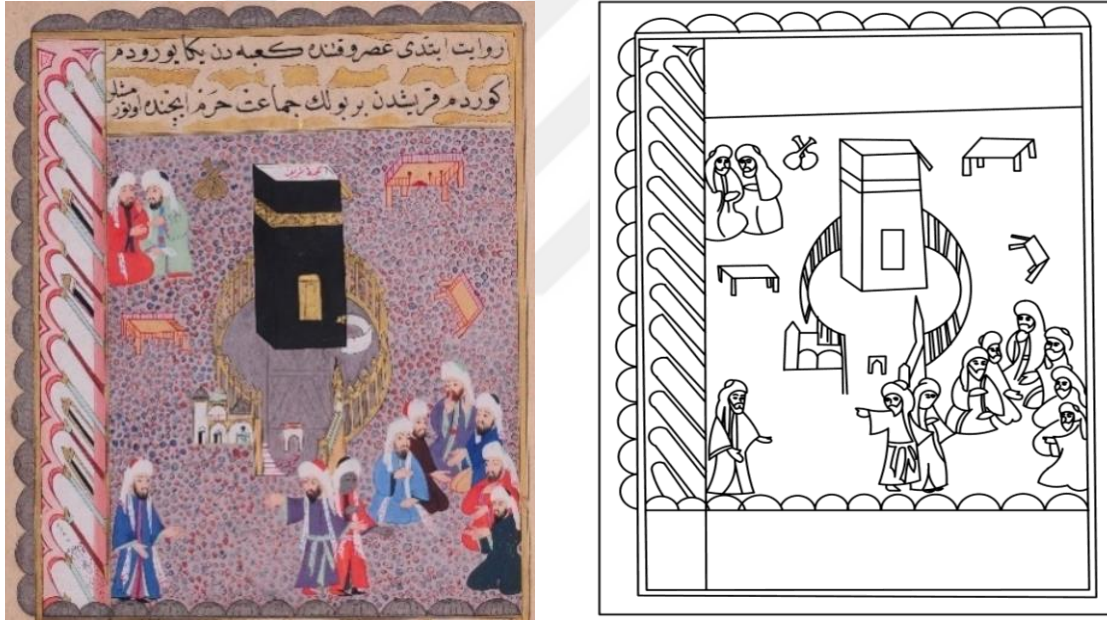 روایت ایتدی عصر وقتنده كعبه دن یكا یورودم
كوردم قریشدن بر بولك جماعت حرم ایچنده اوتور مشلر